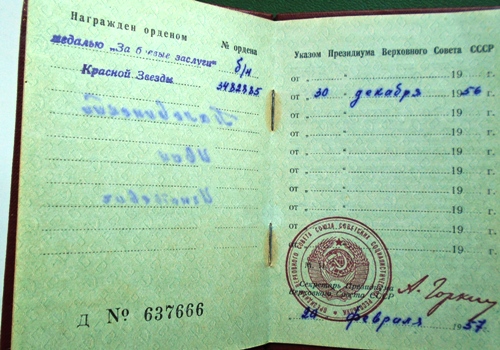 Награжден орденом
№ ордена
медалью „За боевые заслуги"
б/н
Красной Звезды
3482885
Д № 637666
Указом Президиума Верховного Совета СССР
от " 19 г.
от „ 30 " декабря 1956 г.
от " 19 г.
от " 19 г.
от " 19 г.
от " 19 г.
от " 19 г.
от " 19 г.
19 г.
г.
Секретарь Президиума
Верховного Совета СССР
А. Горкин
февраля 1957 г.